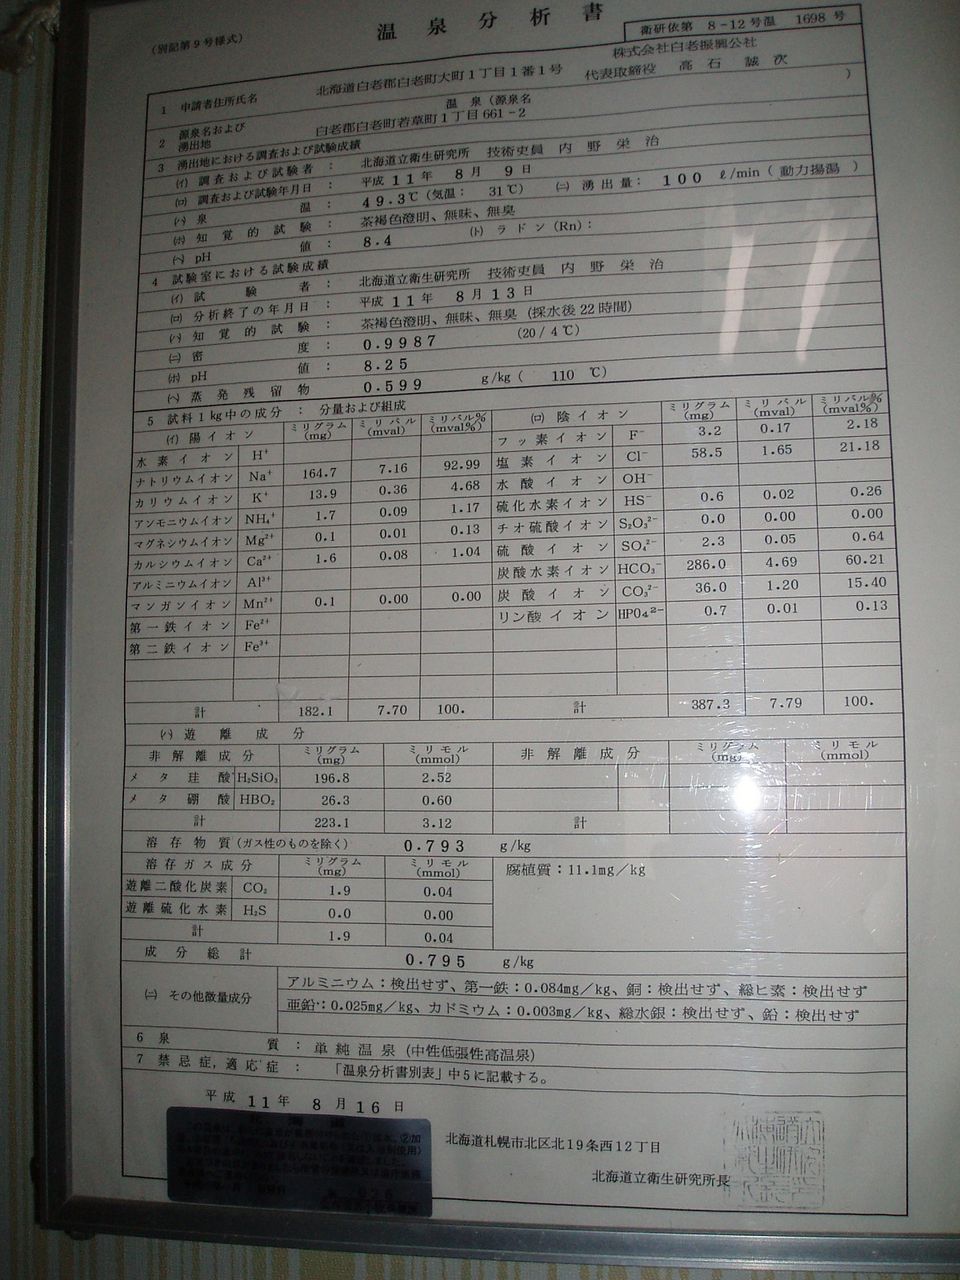 (別記第9号様式)
温泉分析書
衛研依第 8-12号温 1698 号
1 申請者住所氏名 北海道白老郡白老町大町1丁目1番1号 株式会社白老振興公社
代表取締役 高石 誠次
2 源泉名および湧出地 温泉(源泉名 )
白老郡白老町若草町1丁目661-2
3 湧出地における調査および試験成績
(イ) 調査および試験者: 北海道立衛生研究所 技術吏員 内野栄治
(ロ) 調査および試験年月日: 平成11年 8月 9日
(ハ) 泉温: 49.3℃(気温: 31℃) (ニ) 湧出量: 100 ℓ/min(動力揚湯)
(ホ) 知覚的試験: 茶褐色澄明、無味、無臭
(ヘ) pH値: 8.4 (ト) ラドン(Rn):
4 試験室における試験成績
(イ) 試験者: 北海道立衛生研究所 技術吏員 内野栄治
(ロ) 分析終了の年月日: 平成11年 8月13日
(ハ) 知覚的試験: 茶褐色澄明、無味、無臭(採水後22時間)
(ニ) 密度: 0.9987 (20/4℃)
(ホ) pH値: 8.25
(ヘ) 蒸発残留物 0.599 g/kg( 110 ℃)
5 試料1kg中の成分: 分量および組成
(イ) 陽イオン ミリグラム(mg) ミリバル(mval) ミリバル%(mval%) (ロ) 陰イオン ミリグラム(mg) ミリバル(mval) ミリバル%(mval%)
水素イオン H⁺ フッ素イオン F⁻ 3.2 0.17 2.18
ナトリウムイオン Na⁺ 164.7 7.16 92.99 塩素イオン Cl⁻ 58.5 1.65 21.18
カリウムイオン K⁺ 13.9 0.36 4.68 水酸イオン OH⁻
アンモニウムイオン NH₄⁺ 1.7 0.09 1.17 硫化水素イオン HS⁻ 0.6 0.02 0.26
マグネシウムイオン Mg²⁺ 0.1 0.01 0.13 チオ硫酸イオン S₂O₃²⁻ 0.0 0.00 0.00
カルシウムイオン Ca²⁺ 1.6 0.08 1.04 硫酸イオン SO₄²⁻ 2.3 0.05 0.64
アルミニウムイオン Al³⁺ 炭酸水素イオン HCO₃⁻ 286.0 4.69 60.21
マンガンイオン Mn²⁺ 0.1 0.00 0.00 炭酸イオン CO₃²⁻ 36.0 1.20 15.40
第一鉄イオン Fe²⁺ リン酸イオン HPO4²⁻ 0.7 0.01 0.13
第二鉄イオン Fe³⁺
計 182.1 7.70 100. 計 387.3 7.79 100.
(ハ) 遊離成分
非解離成分 ミリグラム(mg) ミリモル(mmol) 非解離成分 ミリグラム(mg) ミリモル(mmol)
メタ珪酸 H₂SiO₃ 196.8 2.52
メタ硼酸 HBO₂ 26.3 0.60
計 223.1 3.12 計
溶存物質(ガス性のものを除く) 0.793 g/kg
溶存ガス成分 ミリグラム(mg) ミリモル(mmol) 腐植質:11.1mg/kg
遊離二酸化炭素 CO₂ 1.9 0.04
遊離硫化水素 H₂S 0.0 0.00
計 1.9 0.04
成分総計 0.795 g/kg
(ニ) その他微量成分 アルミニウム:検出せず、第一鉄:0.084mg/kg、銅:検出せず、総ヒ素:検出せず
亜鉛:0.025mg/kg、カドミウム:0.003mg/kg、総水銀:検出せず、鉛:検出せず
6 泉質: 単純温泉(中性低張性高温泉)
7 禁忌症,適応症: 「温泉分析書別表」中5に記載する。
平成11年 8月16日
北海道札幌市北区北19条西12丁目
北海道立衛生研究所長